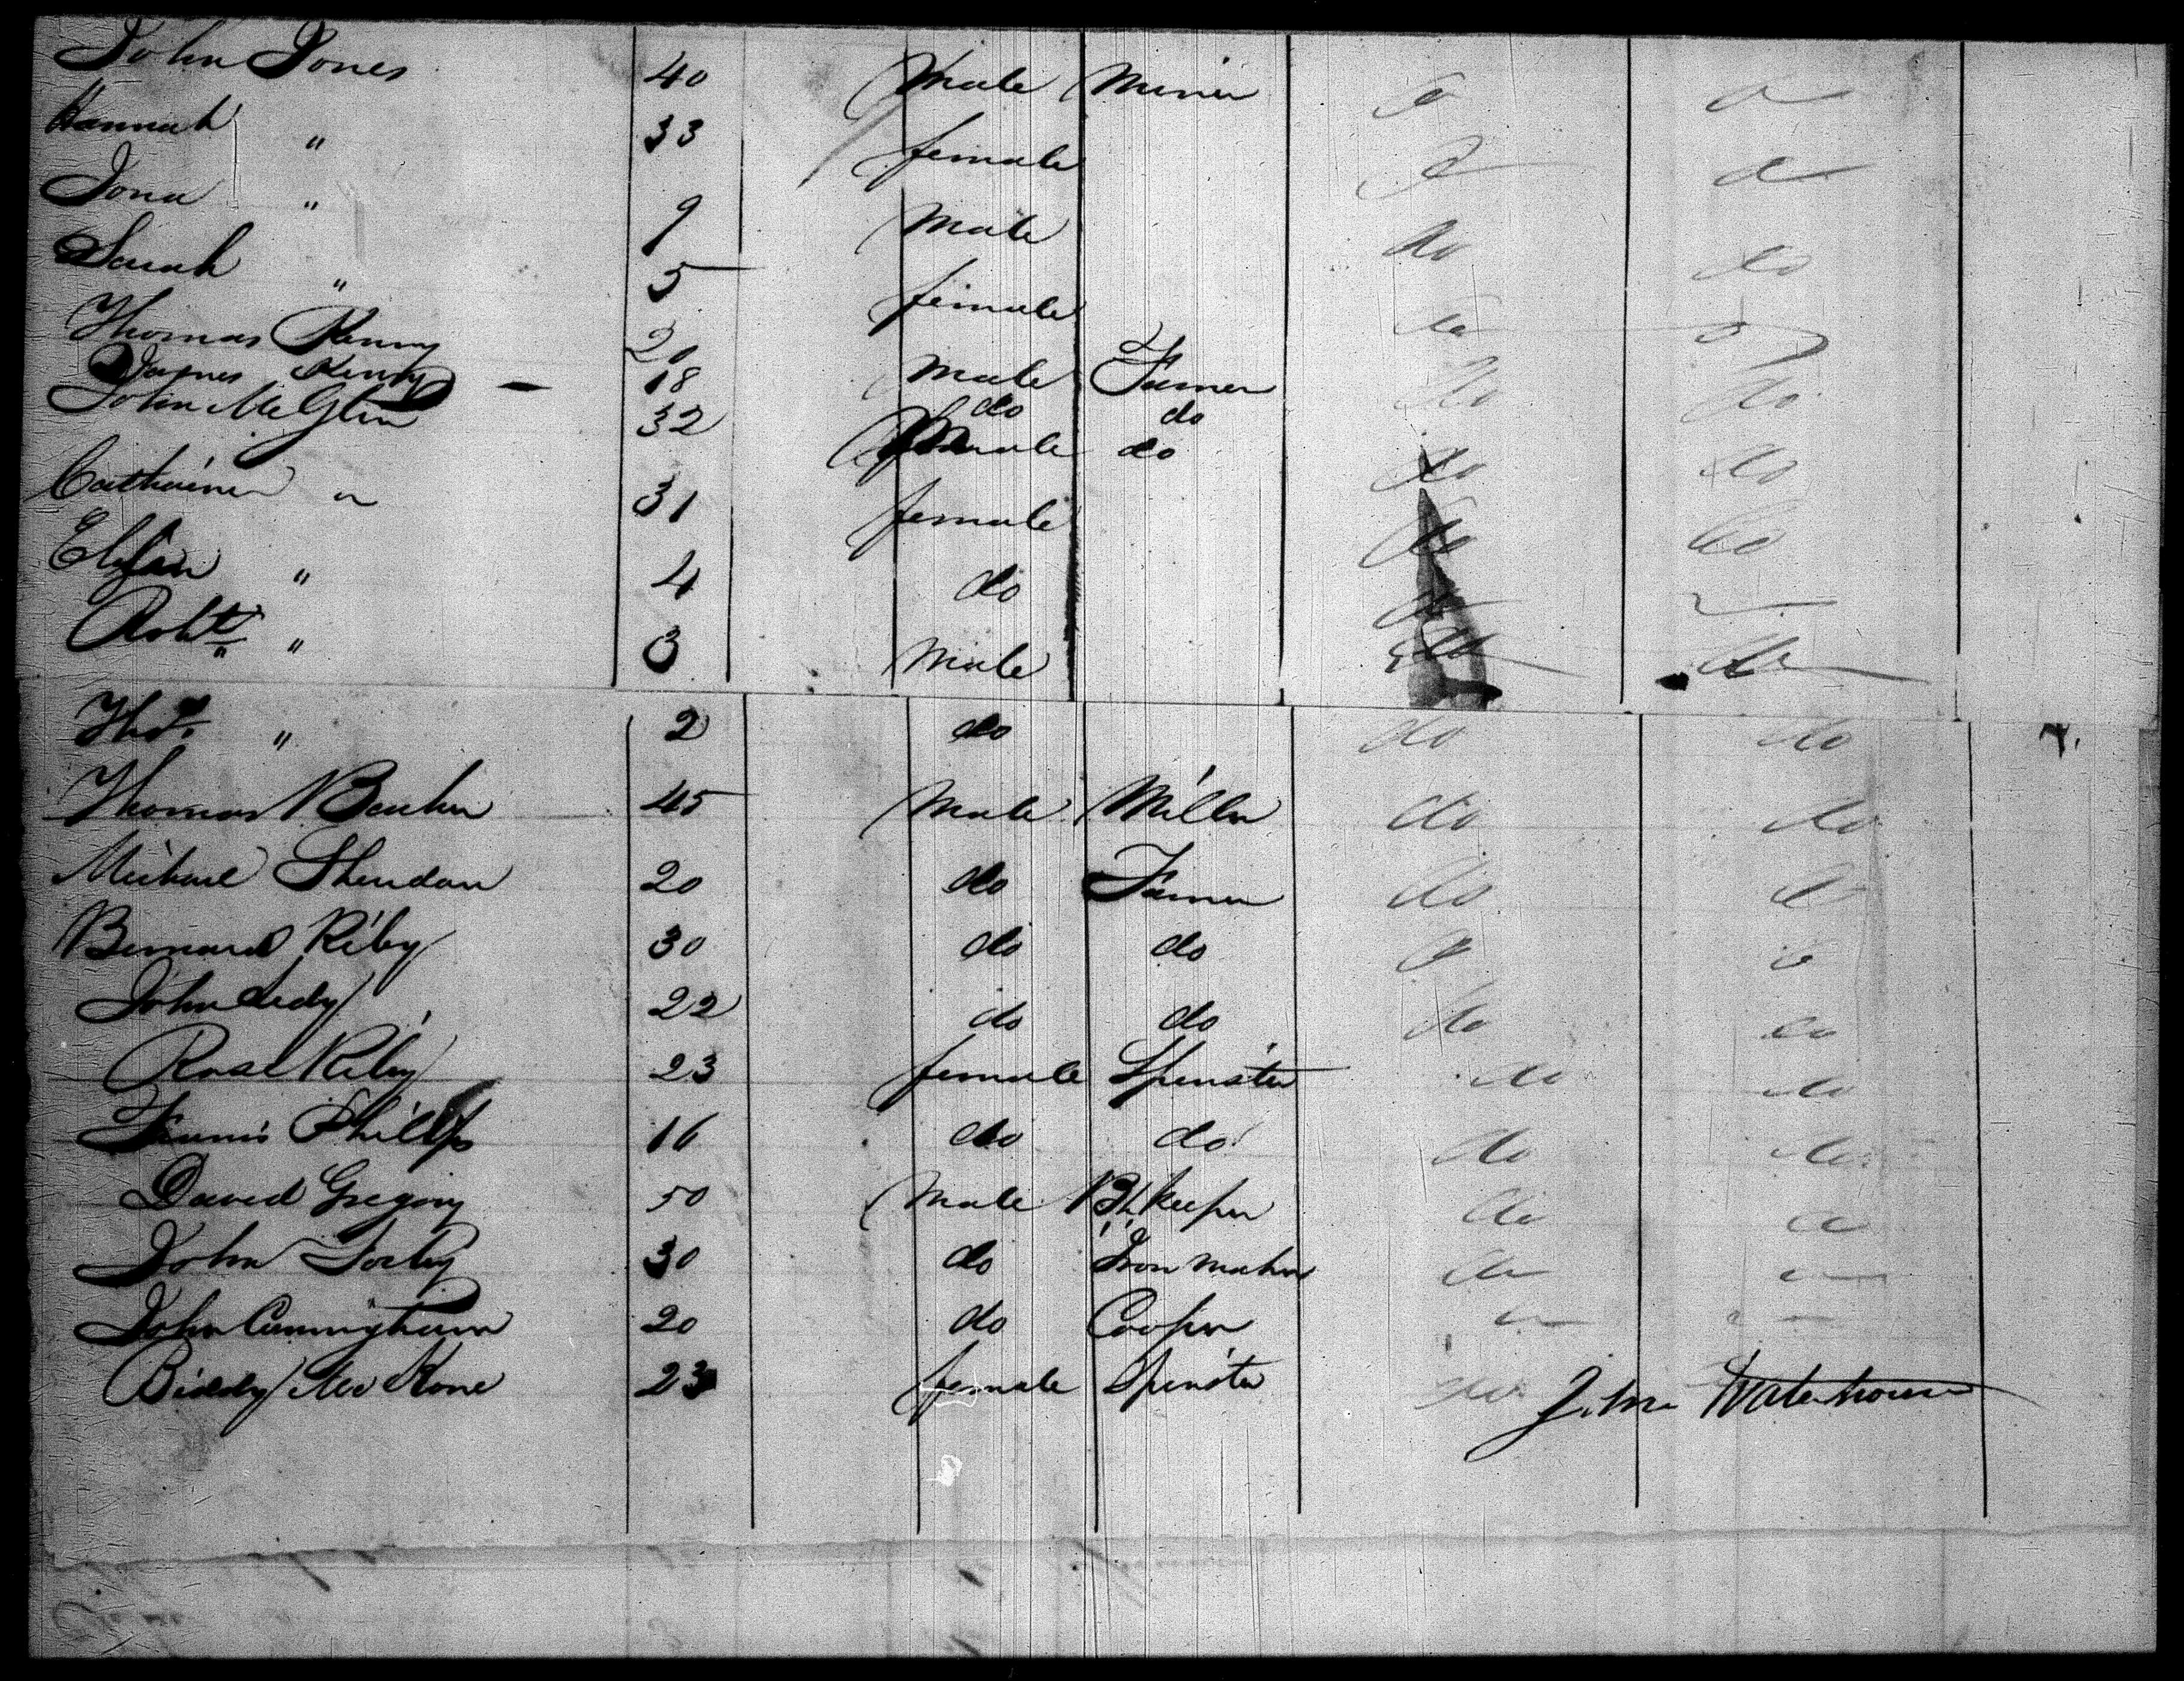 John Jones 40 Male Miner do do
Hannah " 33 female do do
Jona " 9 Male do do
Sarah " 5 female do do
Thomas Kenny 20 Male Farmer do do
James Kenny - 18 do do
John McGlin 32 Male do do do
Catharine " 31 female do do
" 4 do do
Robt " 3 Male do do
Thos " 2 do do do
Thomas 45 Male Miller do do
Michael Sheridan 20 do Farmer do do
Bernard Riley 30 do do do do
John Ledy 22 do do do do
Rose Riley 23 female Spinster do do
Phillips 16 do do do do
David Gregory 50 Male Bk keeper do do
John 30 do Iron do
John Cunningham 20 do Cooper
Biddy McKone 23 female Spinster do
John Waterhouse